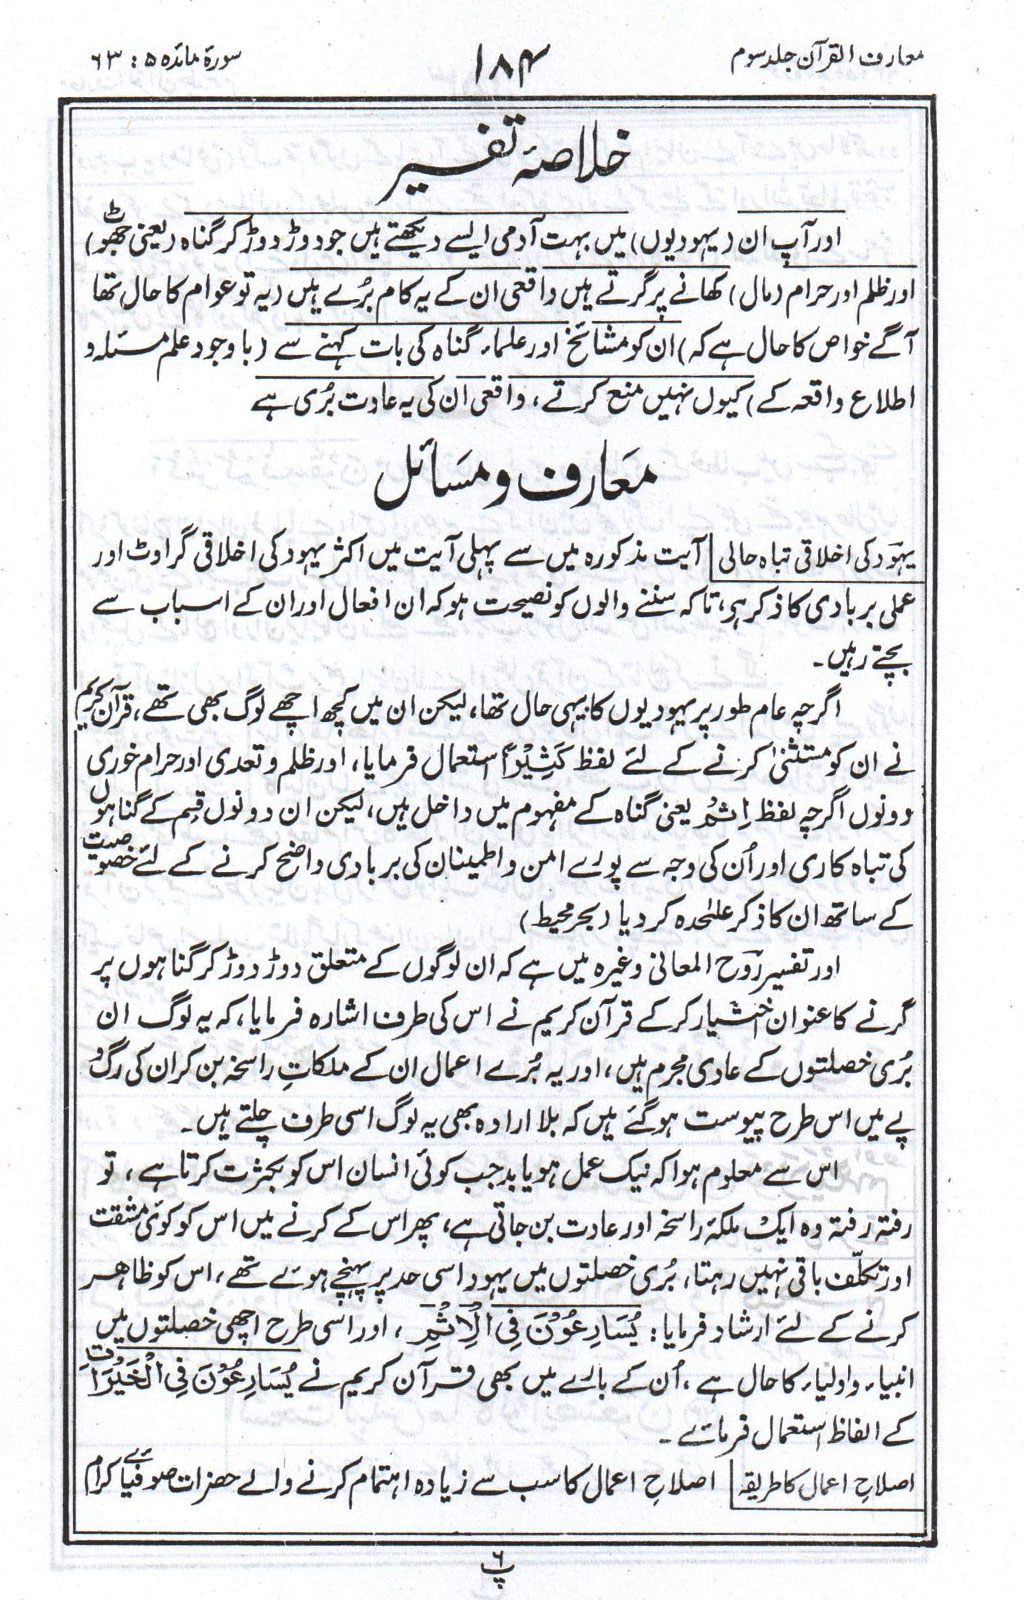 معارف القرآن جلد سوم
۱۸۴
سورۂ مائدہ ۵ : ۶۳
خلاصۂ تفسیر
اور آپ ان (یہودیوں) میں بہت آدمی ایسے دیکھتے ہیں جو دوڑ دوڑ کر گناہ (یعنی جھوٹ)
اور ظلم اور حرام (مال) کھانے پر گرتے ہیں واقعی ان کے یہ کام بُرے ہیں (یہ تو عوام کا حال تھا
آگے خواص کا حال ہے کہ) ان کو مشائخ اور علماء گناہ کی بات کہنے سے (باوجود علم مسئلہ و
اطلاع واقعہ کے) کیوں نہیں منع کرتے، واقعی ان کی یہ عادت بُری ہے
معارف و مسائل
یہود کی اخلاقی تباہ حالی آیت مذکورہ میں سے پہلی آیت میں اکثر یہود کی اخلاقی گراوٹ اور
عملی بربادی کا ذکر ہو، تاکہ سننے والوں کو نصیحت ہو کہ ان افعال اور ان کے اسباب سے
بچتے رہیں۔
اگرچہ عام طور پر یہودیوں کا یہی حال تھا، لیکن ان میں کچھ اچھے لوگ بھی تھے، قرآن کریم
نے ان کو مستثنیٰ کرنے کے لئے لفظ کَثِیْرًا استعمال فرمایا، اور ظلم و تعدی اور حرام خوری
دونوں اگرچہ لفظ اِثْم یعنی گناہ کے مفہوم میں داخل ہیں، لیکن ان دونوں قسم کے گناہوں
کی تباہ کاری اور اُن کی وجہ سے پورے امن و اطمینان کی بربادی واضح کرنے کے لئے خصوصیت
کے ساتھ ان کا ذکر علٰحدہ کر دیا (بحر محیط)
اور تفسیر روح المعانی وغیرہ میں ہے کہ ان لوگوں کے متعلق دوڑ دوڑ کر گناہوں پر
گرنے کا عنوان اختیار کر کے قرآن کریم نے اس کی طرف اشارہ فرمایا، کہ یہ لوگ ان
بُری خصلتوں کے عادی مجرم ہیں، اور یہ بُرے اعمال ان کے ملکاتِ راسخہ بن کر ان کی رگ و
پے میں اس طرح پیوست ہو گئے ہیں کہ بلا ارادہ بھی یہ لوگ اسی طرف چلتے ہیں۔
اس سے معلوم ہوا کہ نیک عمل ہو یا بد جب کوئی انسان اس کو بکثرت کرتا ہے، تو
رفتہ رفتہ وہ ایک ملکۂ راسخہ اور عادت بن جاتی ہے، پھر اس کے کرنے میں اس کو کوئی مشقت
اور تکلّف باقی نہیں رہتا، بُری خصلتوں میں یہود اسی حد پر پہنچے ہوئے تھے، اس کو ظاہر
کرنے کے لئے ارشاد فرمایا: یُسَارِعُوْنَ فِی الْاِثْمِ، اور اسی طرح اچھی خصلتوں میں
انبیاء و اولیاء کا حال ہے، اُن کے بارے میں بھی قرآن کریم نے یُسَارِعُوْنَ فِی الْخَیْرَاتِ
کے الفاظ استعمال فرمائے۔
اصلاحِ اعمال کا طریقہ اصلاحِ اعمال کا سب سے زیادہ اہتمام کرنے والے حضرات صوفیائے کرام
پ۶